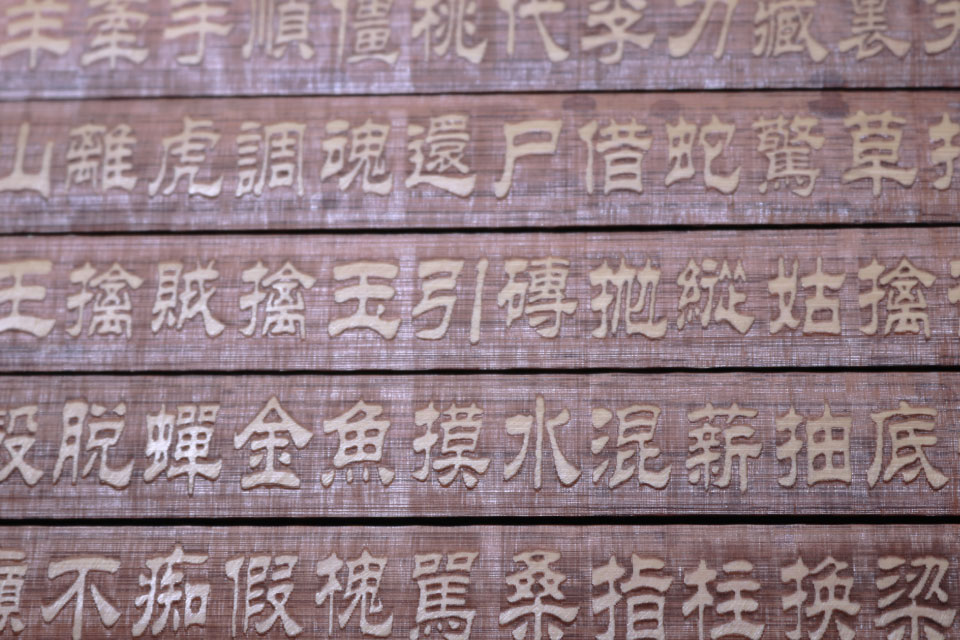 裏藏刀李代桃僵順手牽羊
打草驚蛇借尸還魂調虎離山
擒姑縱抛磚引玉擒賊擒王
底抽薪混水摸魚金蟬脱殼
梁換柱指桑罵槐假痴不